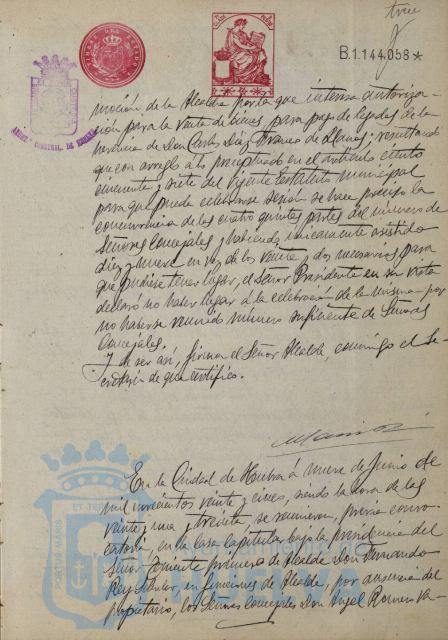 trece
TIMBRE DEL ESTADO
B.1.144.058*
ARCHIVO MUNICIPAL DE HUELVA
moción de la Alcaldía por la que interesa autoriza-
ción para la venta de para pago de legados de la
herencia de Don Carlos Díaz Franco de Llanos; resultando
que con arreglo a lo preceptuado en el artículo ciento
cincuenta y siete del vigente Estatuto Municipal
para que pueda celebrarse sesión se hace preciso la
concurrencia de las cuatro quintas partes del número de
Señores Concejales y habiendo únicamente asistido
diez y nueve en vez de los veinte y dos necesarios para
que pudiese tener lugar, el señor Presidente en su vista
declaró no haber lugar a la celebración de la misma por
no haberse reunido número suficiente de Señores
Concejales.
Y de ser así, firma el Señor Alcalde, conmigo el Se-
cretario de que certifico.
En la Ciudad de Huelva á nueve de Junio de
mil novecientos veinte y cinco, siendo la hora de las
veinte y una y treinta, se reunieron, previa convo-
catoria, en la Casa Capitular bajo la presidencia del
Señor Teniente primero de Alcalde Don Fernando
Rey, en funciones de Alcalde, por ausencia del
propietario, los Señores Concejales Don Angel Romero Va-
PORTUS MARIS ET TERRAE